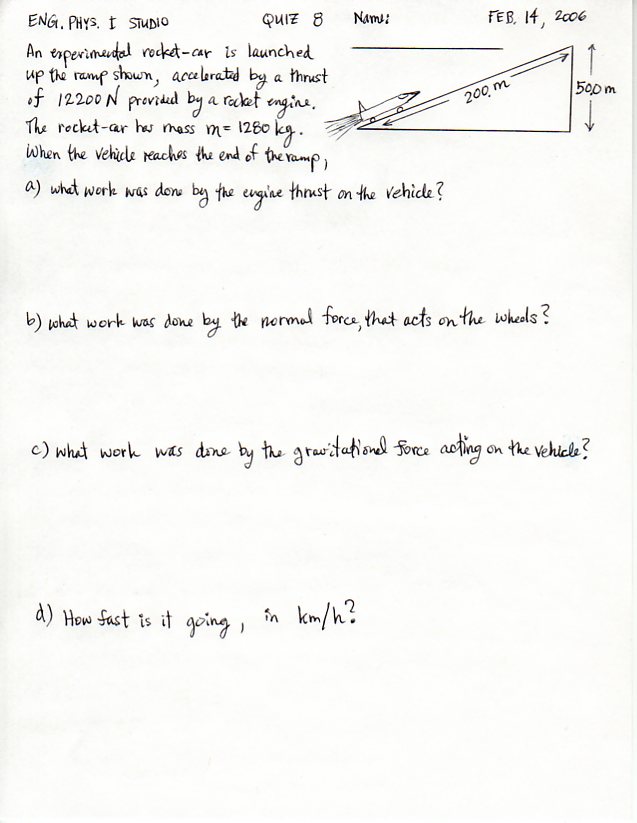 ENG. PHYS. I STUDIO QUIZ 8 Name: FEB. 14, 2006
An experimental rocket-car is launched
up the ramp shown, accelerated by a thrust
of 12200 N provided by a rocket engine.
The rocket-car has mass m= 1280 kg.
When the vehicle reaches the end of the ramp,
200. m
50.0 m
a) what work was done by the engine thrust on the vehicle?
b) what work was done by the normal force, that acts on the wheels?
c) what work was done by the gravitational force acting on the vehicle?
d) How fast is it going, in km/h?